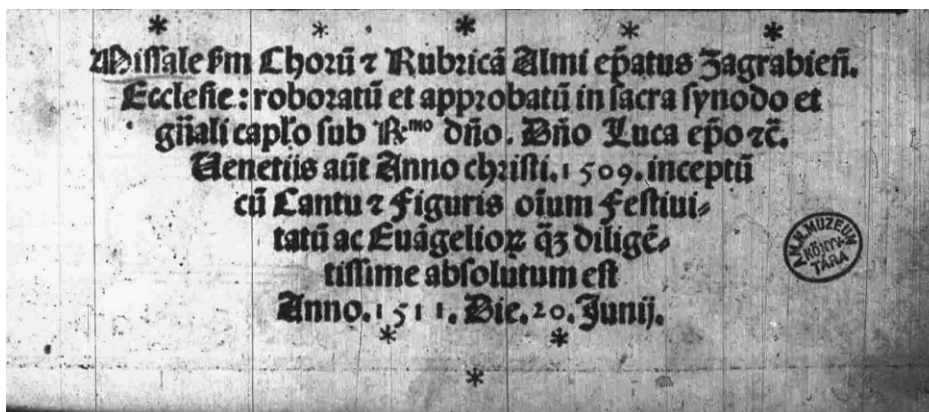 Missale scďm Chorū ⁊ Rubricā Almi ep̄atus Zagrabieñ.
Ecclesie: roboratū et approbatū in sacra synodo et
gn̄ali capl'o sub R:mo dn̄o. Dn̄o Luca ep̄o ⁊c̄.
Uenetiis aūt Anno christi. 1509. inceptū
cū Cantu ⁊ Figuris oīum Festiui⸗
tatū ac Euāgelioꝝ q̄ꝫ diligē⸗
tissime absolutum est
Anno. 1511. Die. 20. Junij.
MUZEUM
TÁRA